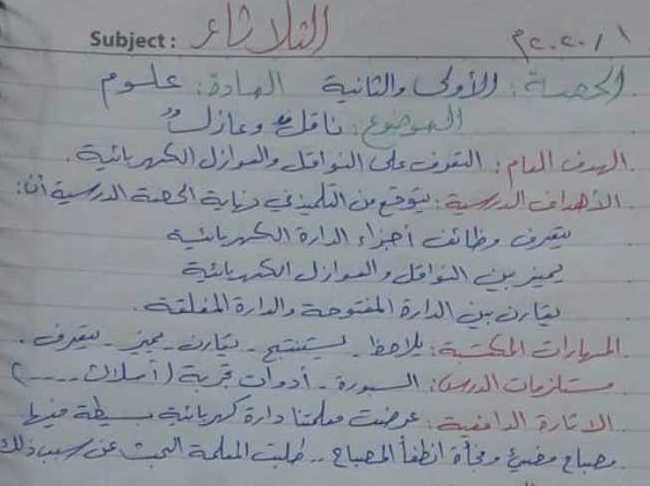 Subject: الثلاثاء ٢٠٢٠/١م
الحصة: الأولى والثانية المادة: علوم
الموضوع: ناقل وعازل
الهدف العام: التعرف على النواقل والعوازل الكهربائية.
الأهداف الدرسية: يتوقع من التلميذ في نهاية الحصة الدرسية أن:
يتعرف وظائف أجزاء الدارة الكهربائية
يميز بين النواقل والعوازل الكهربائية
يقارن بين الدارة المفتوحة والدارة المغلقة.
المهارات المكتسبة: يلاحظ - يستنتج - يقارن - يميز - يتعرف.
مستلزمات الدرس: السبورة - أدوات تجربة (أسلاك ....)
الاثارة الدافعية: عرضت معلمتنا دارة كهربائية بسيطة فيها
مصباح مضيئ وفجأة انطفأ المصباح .. طلبت المعلمة البحث عن سبب ذلك